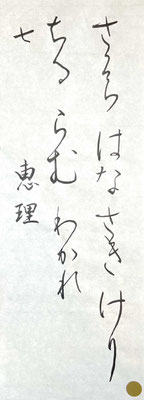 さくら はなさきけり
ちる らむ わかれ
七
恵理